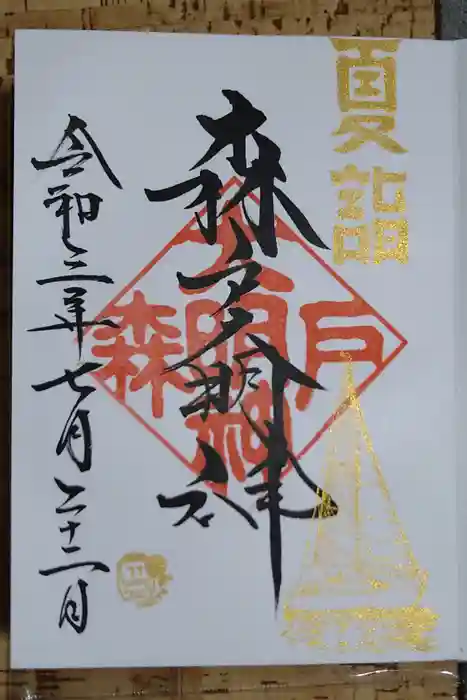 夏詣
森戸大明神
戸
大明神
森
令和三年七月二十二日